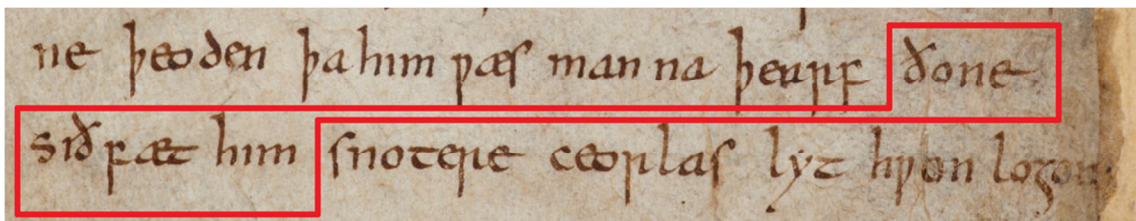 ne þeoden þa him ƿæs man na þearf ðone
sið fæt him snotere ceorlas lyt hƿon logon